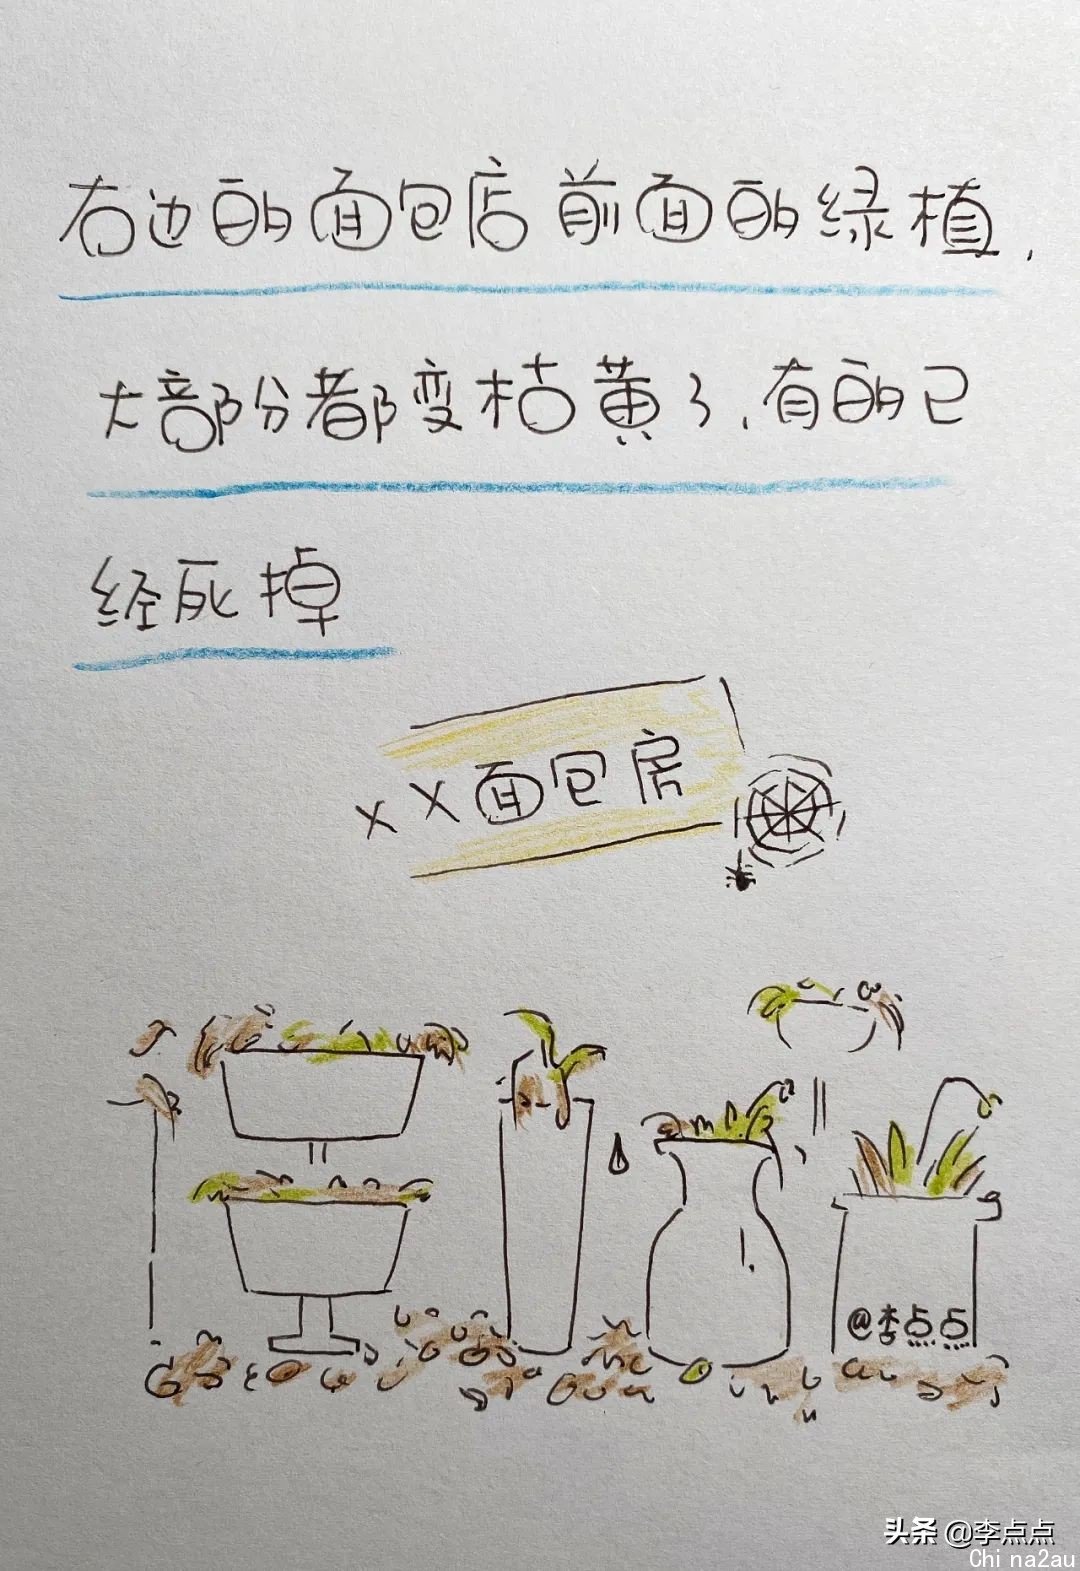 右边的面包店前面的绿植，
大部分都变枯黄了，有的已
经死掉
XX面包房
@李点点
头条 @李点点
Chi na2au